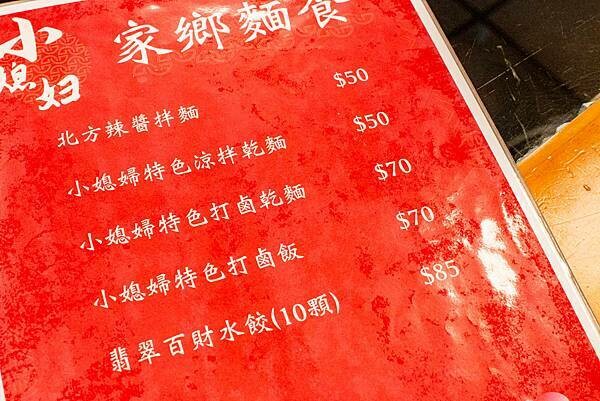 小媳妇
家鄉麵食
北方辣醬拌麵 $50
小媳婦特色涼拌乾麵 $50
小媳婦特色打鹵乾麵 $70
小媳婦特色打鹵飯 $70
翡翠百財水餃(10顆) $85